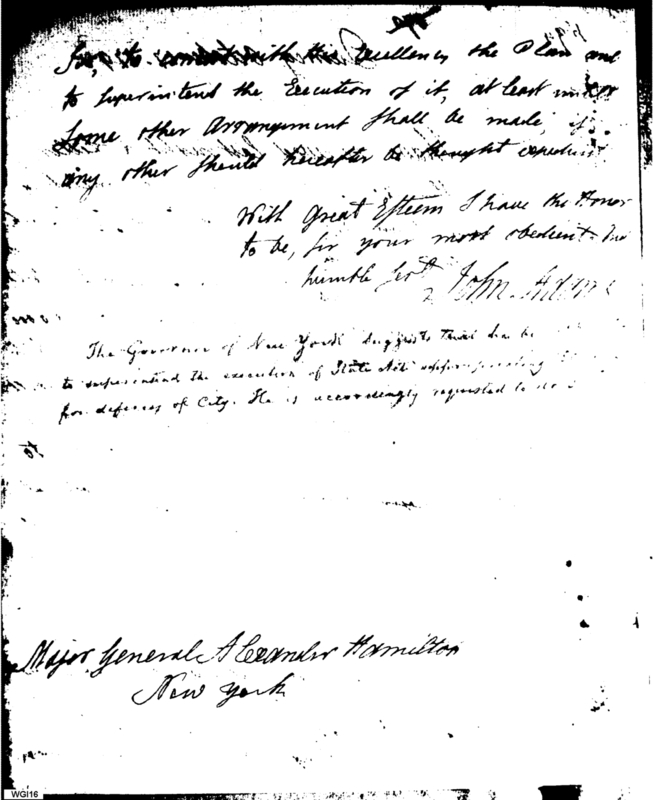 Sir, to consult with his Excellency the Plan and
to Superintend the Execution of it, at least untill
Some other Arrangement Shall be made, if
any other Should hereafter be thought expedient
With Great Esteem I have the Honor
to be, Sir your most obedient and
humble Servt
John Adams
The Governor of New York Suggests that
to superintend the execution of State Act appropriating
for defences of City. He is accordingly requested to do
Major General Alexander Hamilton
New York
WGI16